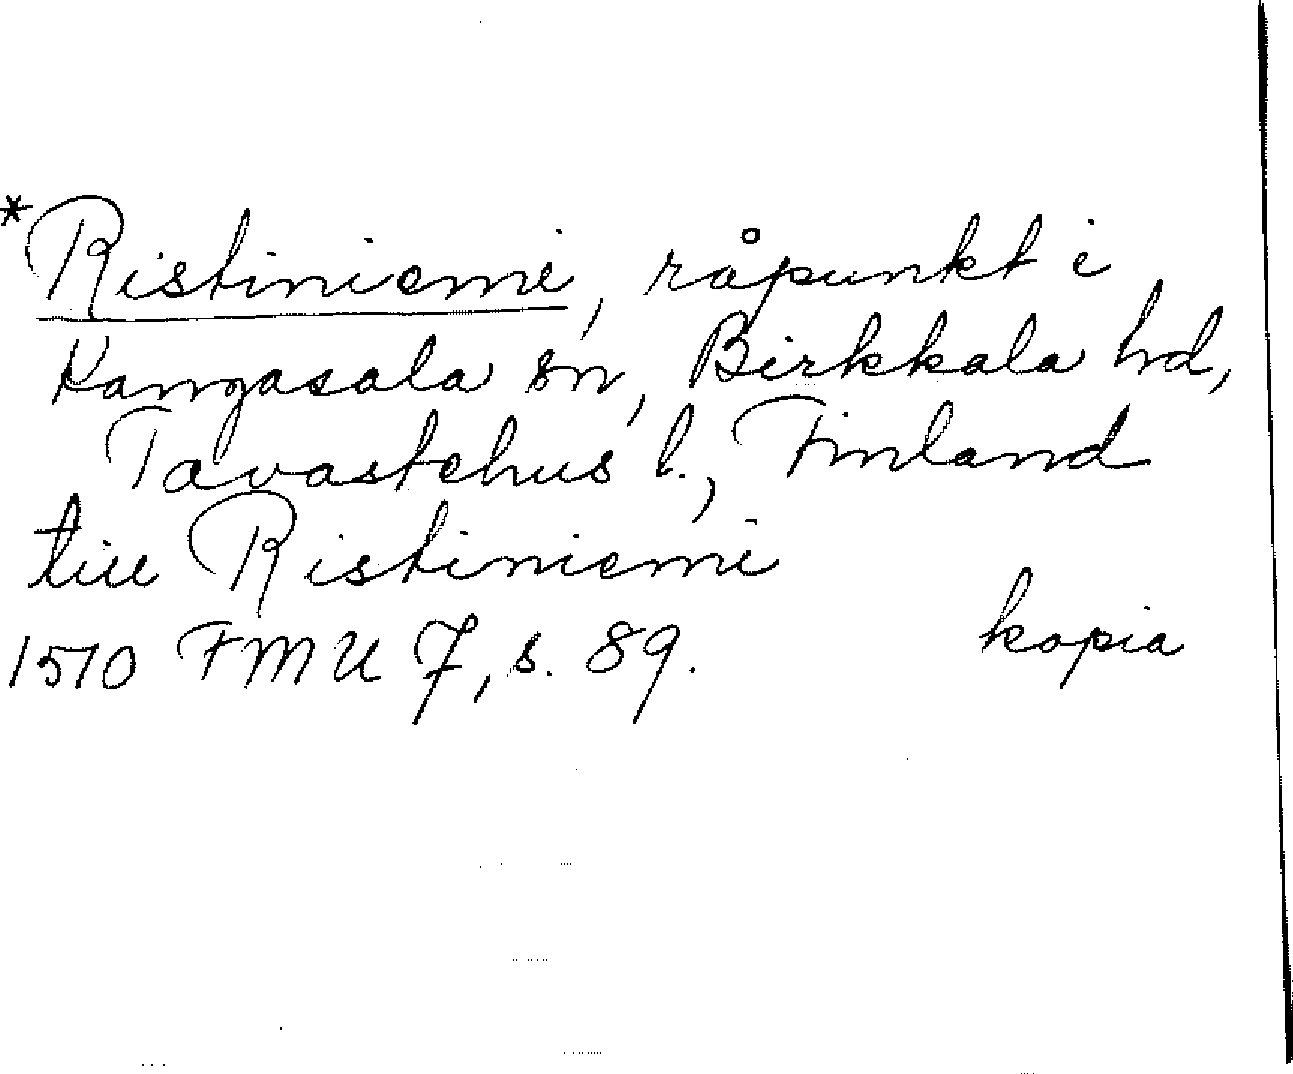 *Ristiniemi, råpunkt i
Kangasala sn, Birkkala hd,
Tavastehus l., Finland
till Ristiniemi
1510 FMU 7, s. 89.
kopia